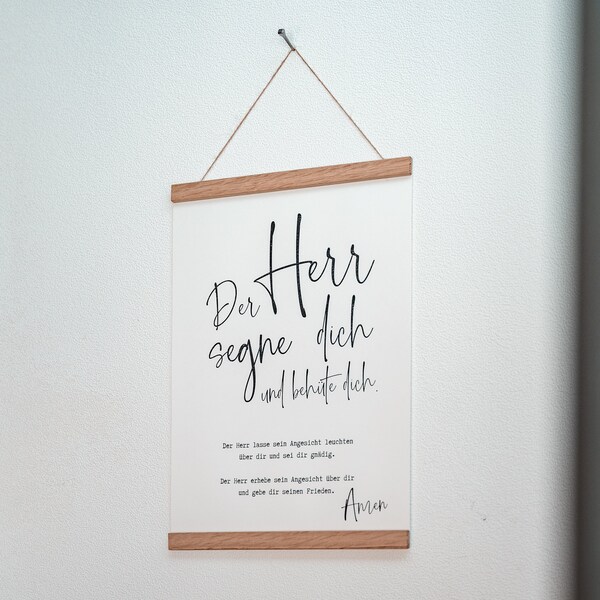 Der Herr
segne dich
und behüte dich.
Der Herr lasse sein Angesicht leuchten
über dir und sei dir gnädig.
Der Herr erhebe sein Angesicht über dir
und gebe dir seinen Frieden.
Amen